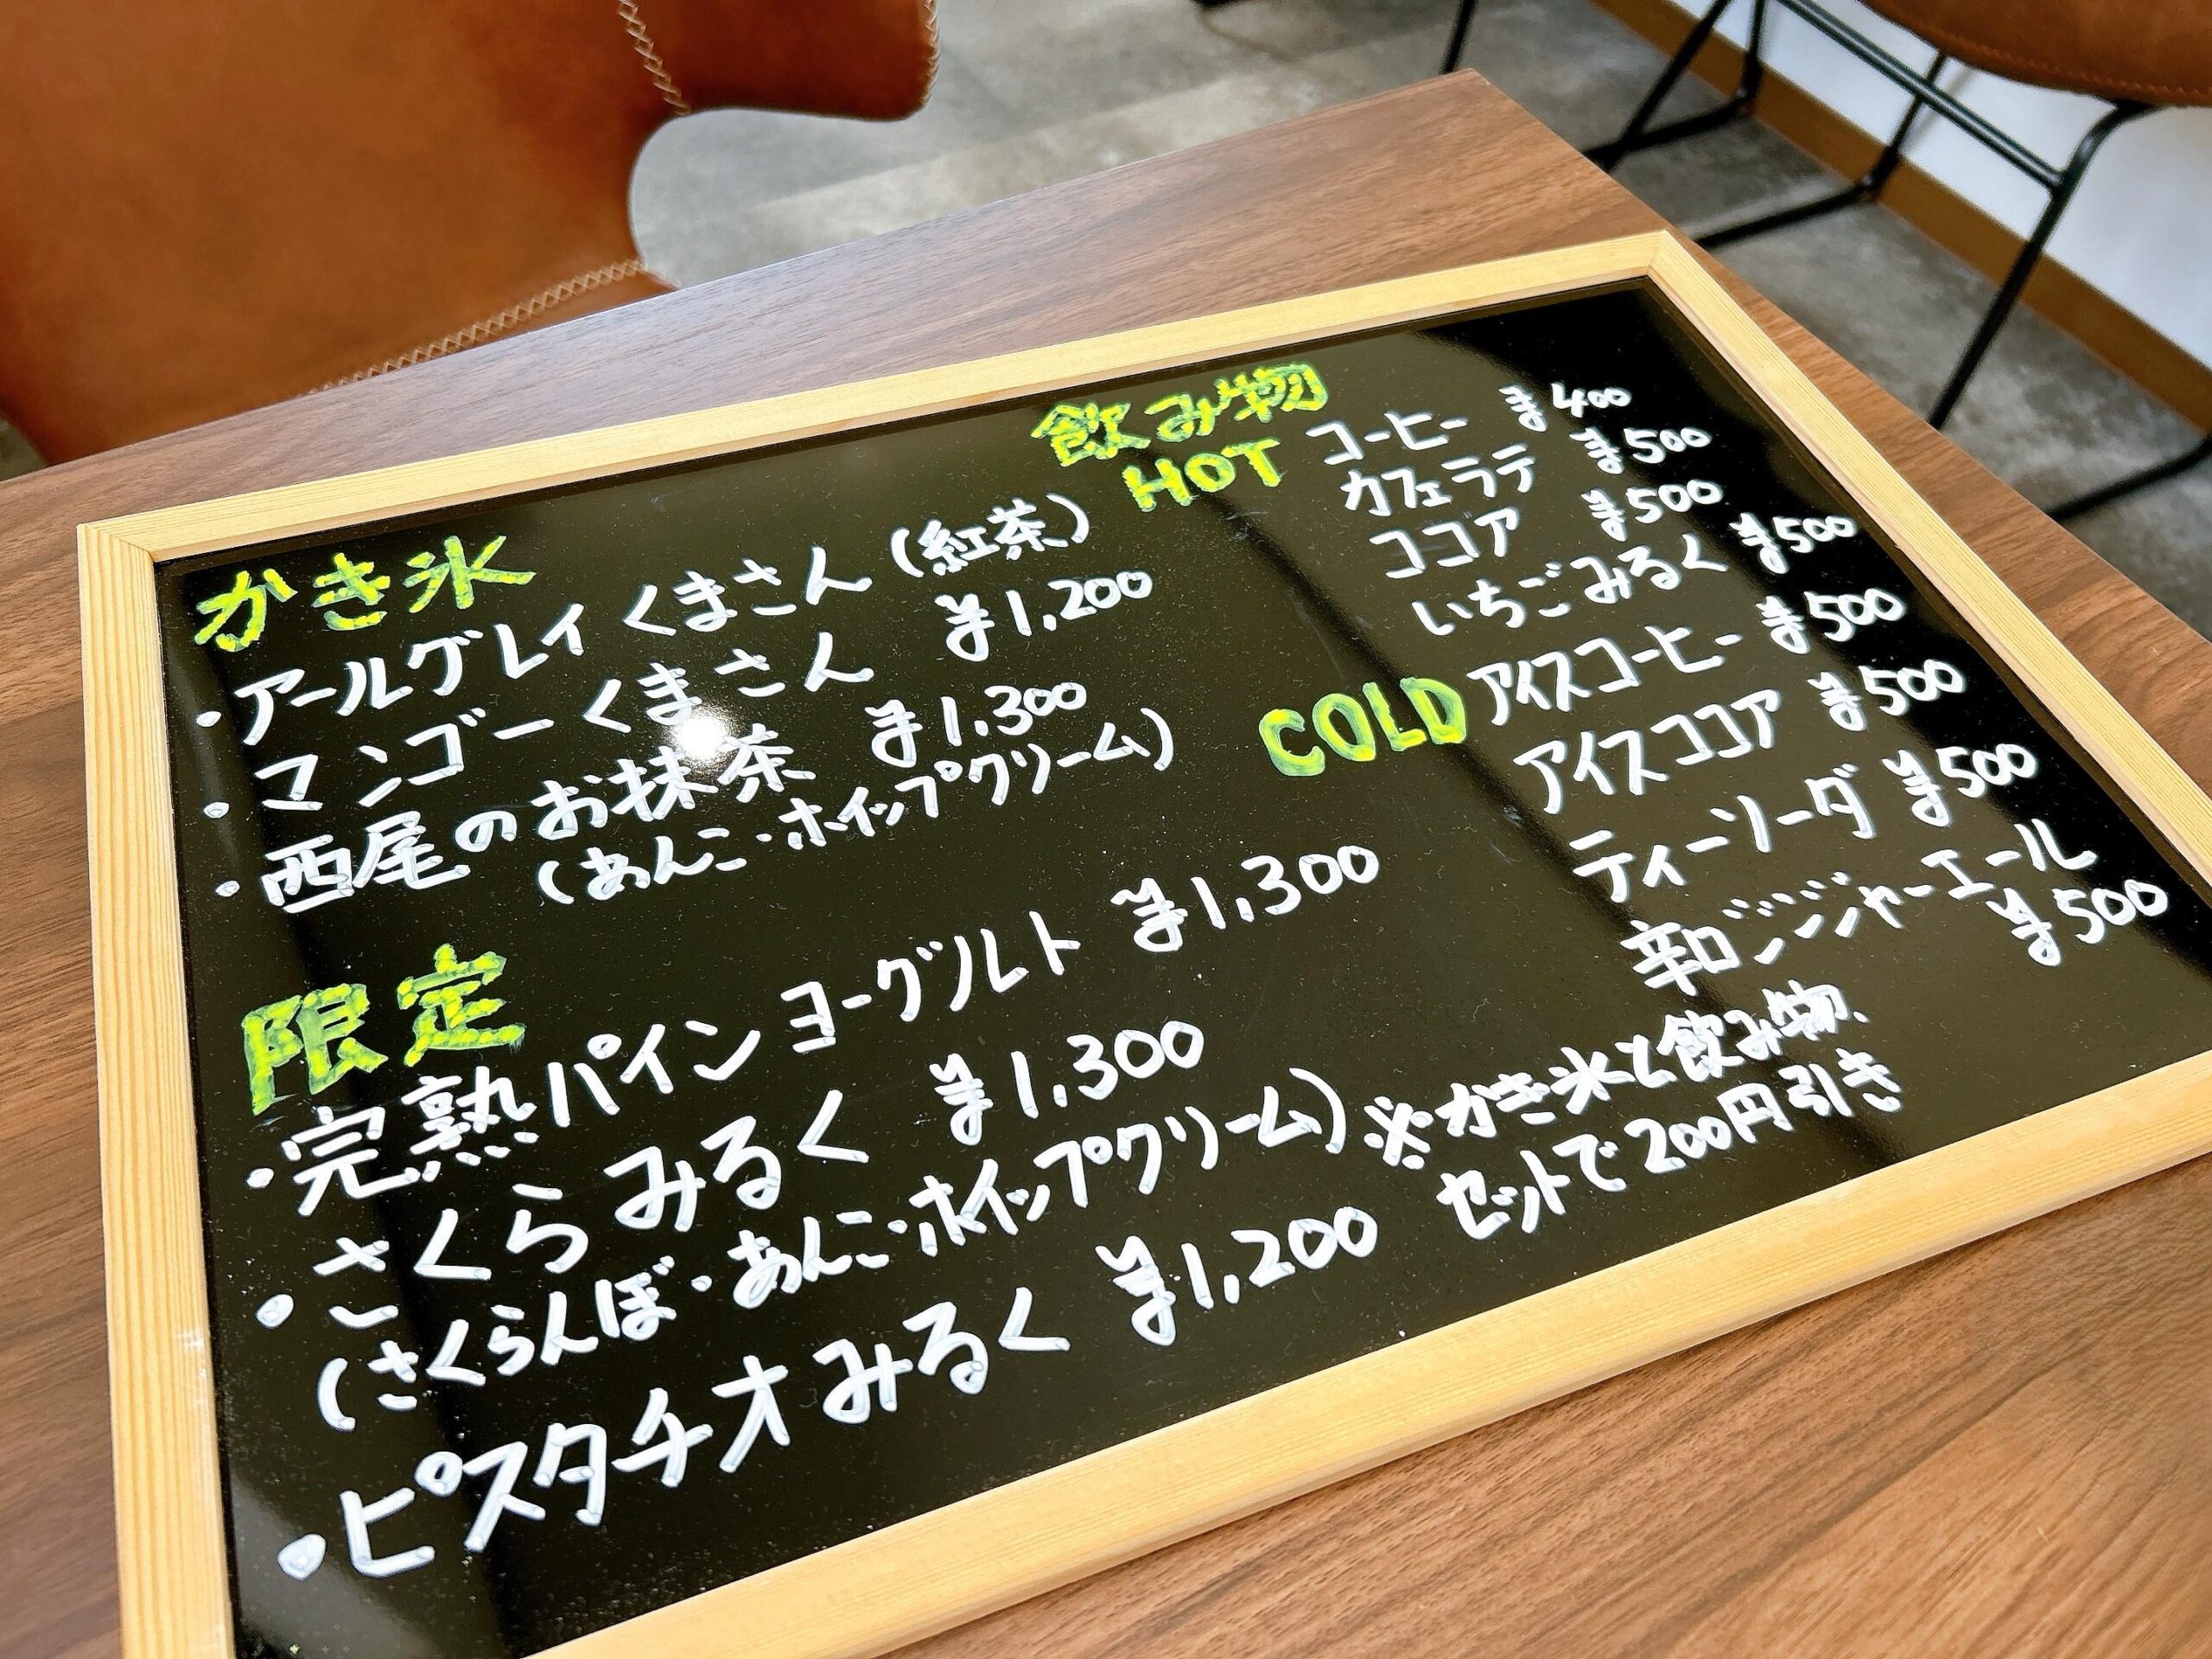 かき氷
・アールグレイくまさん(紅茶)
・マンゴーくまさん ¥1,200
・西尾のお抹茶 ¥1,300
(あんこ・ホイップクリーム)
限定
・完熟パインヨーグルト ¥1,300
・さくらみるく ¥1,300
(さくらんぼ・あんこ・ホイップクリーム)
・ピスタチオみるく ¥1,200
飲み物
HOT コーヒー ¥400
カフェラテ ¥500
ココア ¥500
いちごみるく ¥500
COLD アイスコーヒー ¥500
アイスココア ¥500
ティーソーダ ¥500
辛口ジンジャーエール
¥500
※かき氷と飲み物、
セットで200円引き